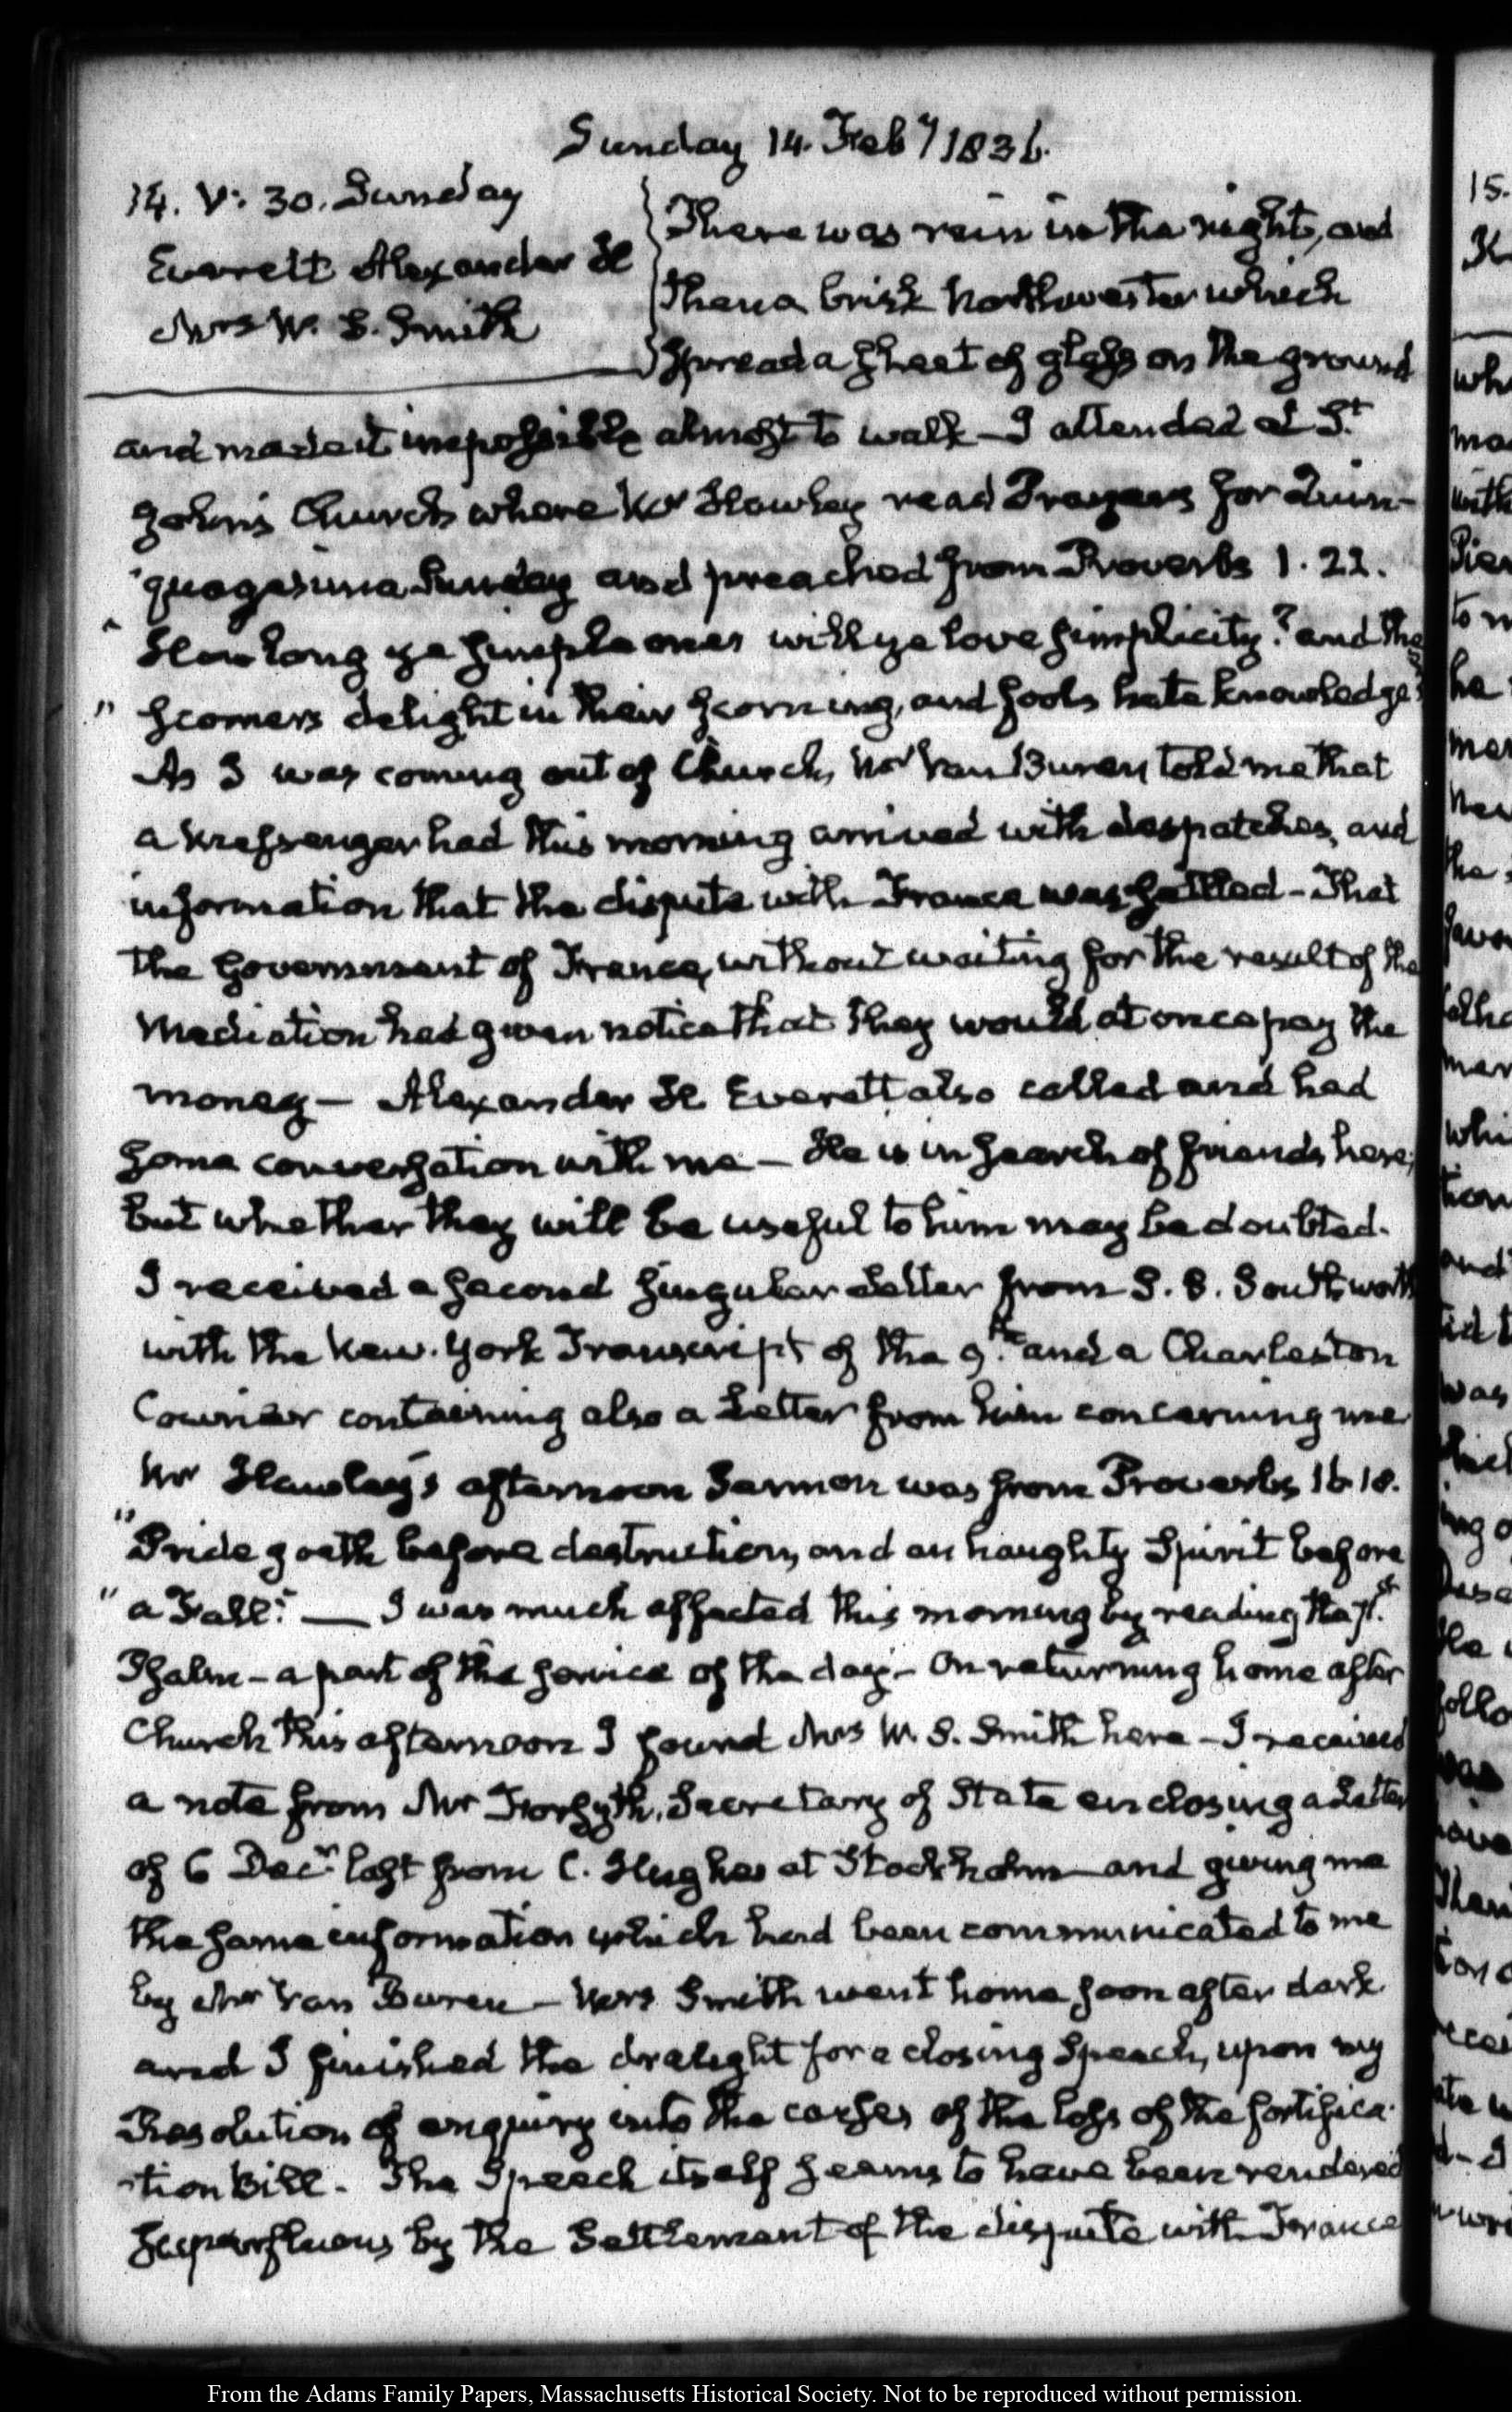 Sunday 14. Feby 1836.
14. V: 30. Sunday
Everett Alexander H
Mrs W. S. Smith
There was rain in the night, and
then a brisk Northwester which
spread a sheet of glass on the ground
and made it impossible almost to walk — I attended at St.
John's Church where Mr Hawley read Prayers for Quin-
quagesima Sunday and preached from Proverbs 1. 22.
"How long ye simple ones will ye love simplicity? and the
" scorners delight in their scorning, and fools hate knowledge?
As I was coming out of Church, Mr Van Buren told me that
a Messenger had this morning arrived with despatches, and
information that the dispute with France was settled — That
the Government of France, without waiting for the result of the
Mediation had given notice that they would at once pay the
money — Alexander H Everett also called and had
some conversation with me — He is in search of friends here;
but whether they will be useful to him may be doubted.
I received a second singular Letter from S. S. Southworth
with the New-York Transcript of the 9th and a Charleston
Courier containing also a Letter from him concerning me
Mr Hawley's afternoon Sermon was from Proverbs 16 18.
"Pride goeth before destruction, and an haughty Spirit before
" a Fall." — I was much affected this morning by reading the 71st
Psalm — a part of the service of the day — On returning home after
Church this afternoon I found Mrs W. S. Smith here — I received
a note from Mr Forsyth, Secretary of State enclosing a Letter
of 6 Decr last from C. Hughes at Stockholm — and giving me
the same information which had been communicated to me
by Mr Van Buren — Mrs Smith went home soon after dark
and I finished the draught for a closing Speech, upon my
Resolution of enquiry into the causes of the loss of the fortifica-
-tion Bill — The Speech itself seems to have been rendered
superfluous by the Settlement of the dispute with France
From the Adams Family Papers, Massachusetts Historical Society. Not to be reproduced without permission.